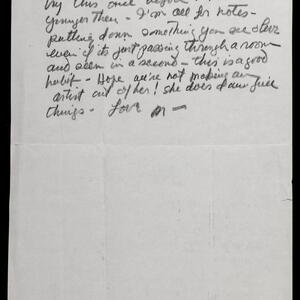 try this once before
younger then - I'm all for notes -
putting down something you see
even if its just passing through a room
and seen in a second - this is a good
habit - Hope we're not making an
artist out of her! she does draw nice
things - Love M -